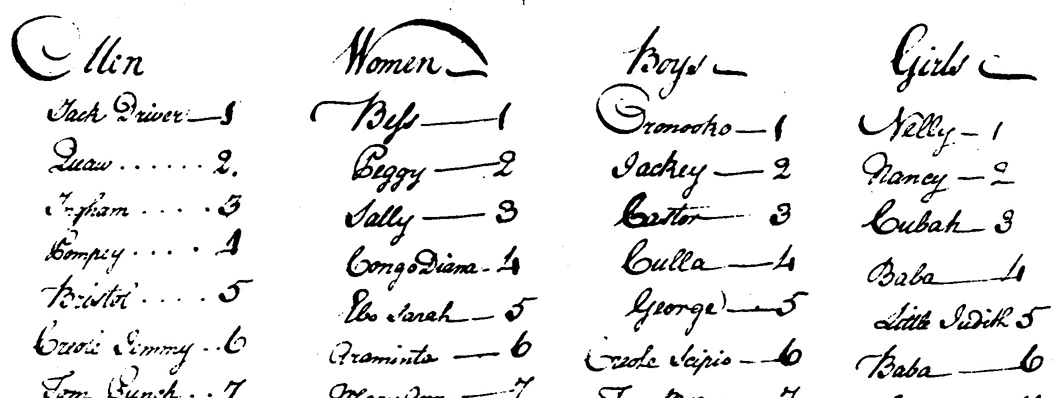 Men Women Boys Girls
Jack Driver 1 Bess 1 Oronooko 1 Nelly 1
Quaw 2. Peggy 2 Jackey 2 Nancy 2
Ingham 3 Sally 3 Castor 3 Cubah 3
Pompey 4 Congo Diana 4 Culla 4 Baba 4
Bristol 5 Ebo Sarah 5 George 5 Little Judith 5
Creole Jemmy 6 Araminta 6 Creole Scipio 6 Baba 6
Tom Punch 7 Mary Ann 7 7